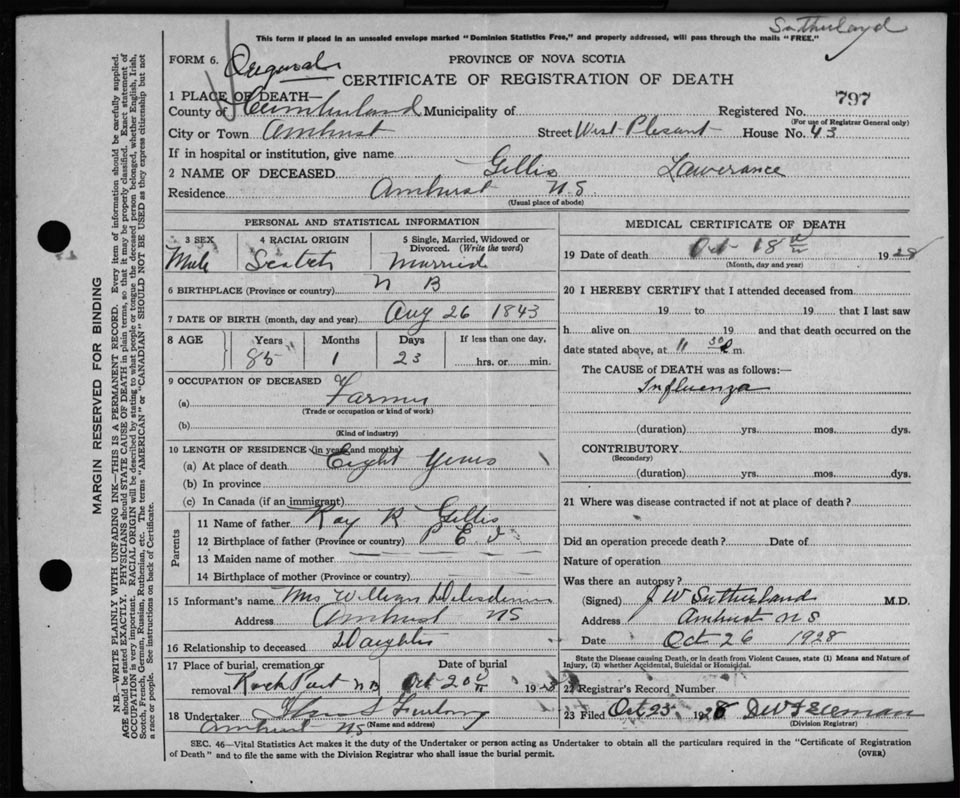 Sutherland
This form if placed in an unsealed envelope marked "Dominion Statistics Free," and property addressed, will pass through the mails "FREE."
FORM 6. Original
PROVINCE OF NOVA SCOTIA
CERTIFICATE OF REGISTRATION OF DEATH
1 PLACE OF DEATH—
County of Cumberland Municipality of Registered No. 797
(For use of Registrar General only)
City or Town Amhust Street West Plesant House No. 43
If in hospital or institution, give name
2 NAME OF DECEASED Gillis Lawerance
Residence Amhust NS
(Usual place of abode)
PERSONAL AND STATISTICAL INFORMATION
3 SEX 4 RACIAL ORIGIN 5 Single, Married, Widowed or Divorced. (Write the word)
Male Scotch Married
6 BIRTHPLACE (Province or country) N B
7 DATE OF BIRTH (month, day and year) Aug 26 1843
8 AGE Years Months Days If less than one day,
85 1 23 hrs. or min.
9 OCCUPATION OF DECEASED
(a) Farmer
(Trade or occupation or kind of work)
(b)
(Kind of industry)
10 LENGTH OF RESIDENCE (in years and months)
(a) At place of death Eight Years
(b) In province
(c) In Canada (if an immigrant)
Parents
11 Name of father Ray R Gillis
12 Birthplace of father (Province or country) P E I
13 Maiden name of mother
14 Birthplace of mother (Province or country)
15 Informant's name Mrs William
Address Amhust NS
16 Relationship to deceased Daughter
17 Place of burial, cremation or removal Date of burial
Rock Port NB Oct 20 1928
18 Undertaker Furlong
(Name and address)
Amhust NS
MEDICAL CERTIFICATE OF DEATH
19 Date of death Oct 18 th 1928
(Month, day and year)
20 I HEREBY CERTIFY that I attended deceased from
19 to 19 that I last saw
h alive on 19 and that death occurred on the
date stated above, at 11 30 P m.
The CAUSE of DEATH was as follows:—
Influenza
(duration) yrs. mos. dys.
CONTRIBUTORY
(Secondary)
(duration) yrs. mos. dys.
21 Where was disease contracted if not at place of death?
Did an operation precede death? Date of
Nature of operation
Was there an autopsy?
(Signed) J W Sutherland M.D.
Address Amhust NS
Date Oct 26 1928
State the Disease causing Death, or in death from Violent Causes, state (1) Means and Nature of
Injury, (2) whether Accidental, Suicidal or Homicidal.
22 Registrar's Record Number
23 Filed Oct 23 1928
(Division Registrar)
SEC. 46—Vital Statistics Act makes it the duty of the Undertaker or person acting as Undertaker to obtain all the particulars required in the "Certificate of Registration
of Death" and to file the same with the Division Registrar who shall issue the burial permit. (OVER)
MARGIN RESERVED FOR BINDING
N.B.—WRITE PLAINLY WITH UNFADING INK—THIS IS A PERMANENT RECORD. Every item of information should be carefully supplied.
AGE should be stated EXACTLY. PHYSICIANS should STATE CAUSE OF DEATH in plain terms, so that it may be properly classified. Exact statement of
OCCUPATION is very important. RACIAL ORIGIN will be described by stating to what people or tongue the deceased person belonged, whether English, Irish,
Scotch, French, German, Russian, Ruthenian, etc. The terms "AMERICAN" or "CANADIAN" SHOULD NOT BE USED as they express citizenship but not
a race or people. See instructions on back of Certificate.